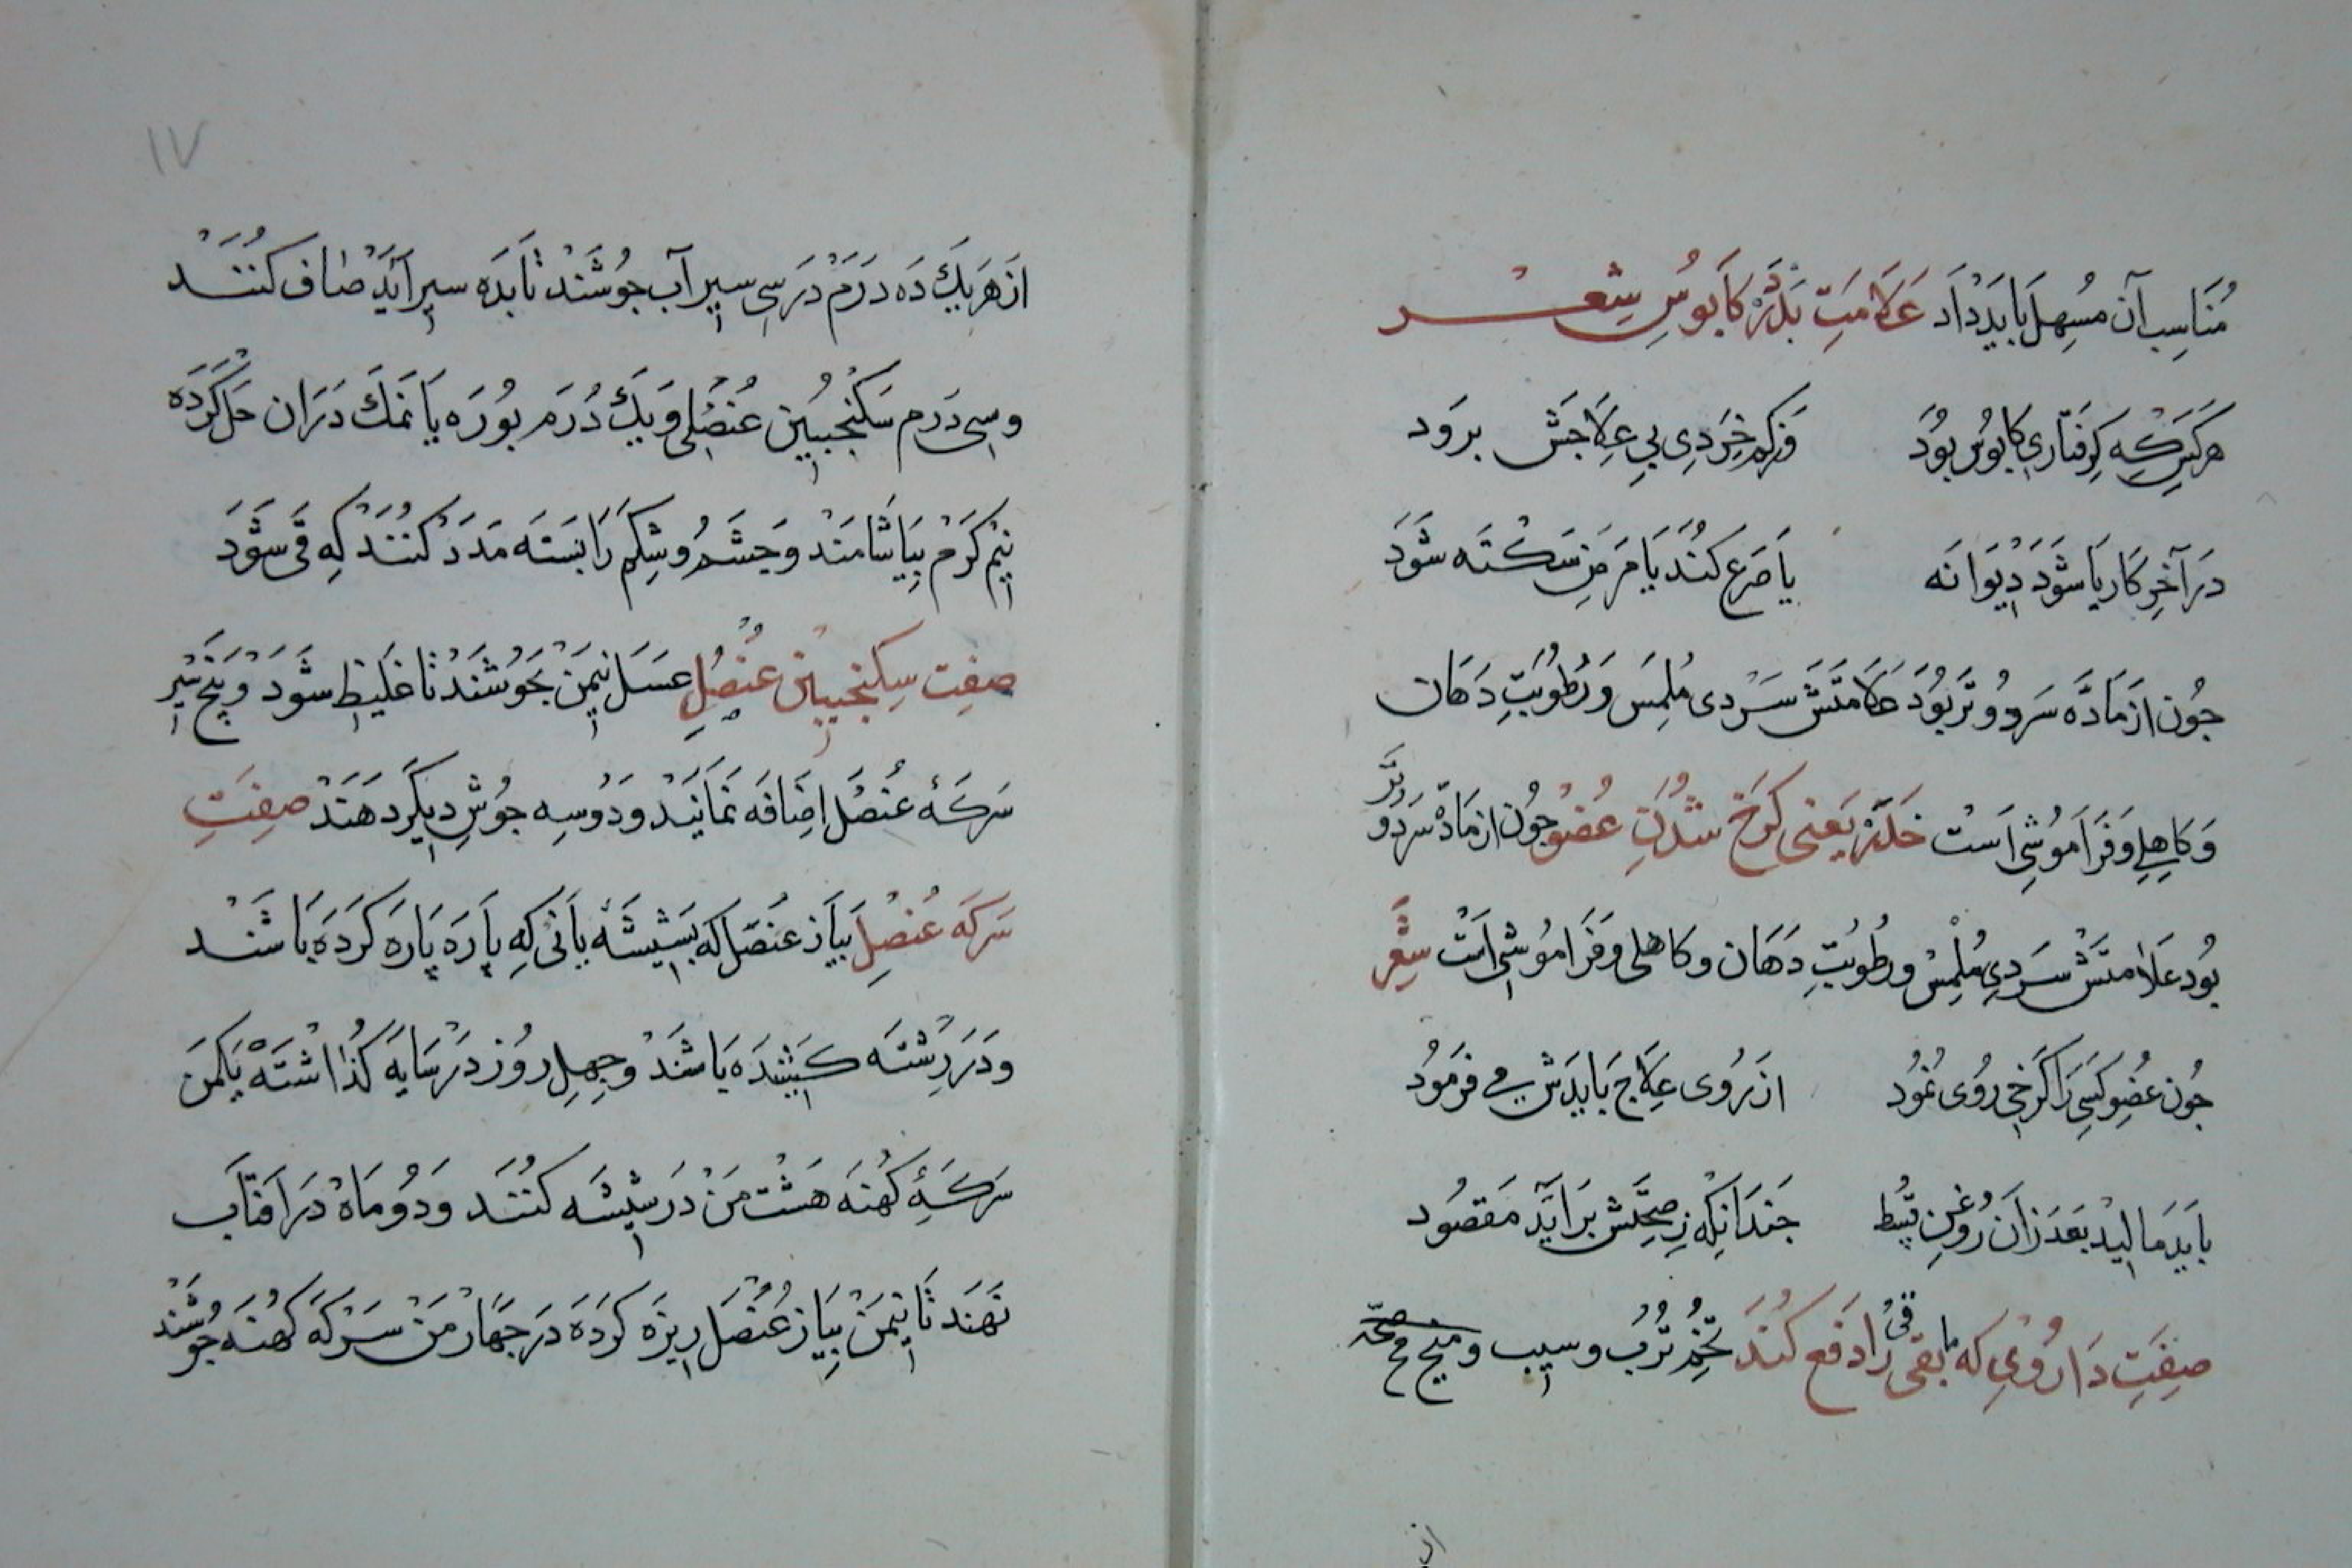 مُنَاسِبِ آن مُسهِل بَايَد دَاد عَلَامَتِ بَدْتَرْ كَابُوسِ شِعْر
هَركَس كِه كِرِفتَارِي كَابُوس بُوَد فَزكَر خِرَدِي بِي عِلَاجَش برَوَد
دَر آخِرِ كَار يَا شَوَد دِيوَانَه يَا صَرَع كُنَد يَا مَرَضِ سَكْتَه شَوَد
جُون از مَادَّه سَرد وُ تَر بُوَد عَلَامَتَش سَردِى مُلِمَس وَ رُطُوبَتِ دَهَان
وَ كَاهِلِي وَ فَرَامُوشِي اَسْت خَدَرْ يَعنى كَرَخ شُدَنِ عُضْو جُون از مَادّه سَرد وُ تَر
بُود عَلَامَتَش سَردِي مُلْمِس و رطُوبَتِ دَهَان و كاهلى و فَرَامُوشى اَسْت شِعْر
جُون عُضوِ كَسِي رَا كَرَخِي رُوى نُمُود از رُوى عِلَاج بَايَدَش مى فرمُود
بايَد مَاليد بَعد ازَان رُوغنِ قُسْط جَندَانكِه زِ صِحَّتَش بَر آيَد مَقصُود
صِفَتِ دَارُوْيِ كه مَا بقى قى رَا دَفع كُنَد تُخمِ تُرُب و سِيب و مبنج مح صحّه
از
١٧
از هَر يَك دَه دَرَمْ دَر سِى سِير آب جُوشَنْد تَا بَدَه سِير آيَدْ صَاف كُنَنْد
و سِى دَرَم سَكَنْجَبِين عُنصُلى وَ يَك دُرَم بُورَه يَا نَمَك دَرَان حَل كَرْدَه
نِيم كَرم بِيَاشَامَنْد وَ جَشْم وُ شِكَم رَا بَستَه مَدَد كُنَنْد كِه قَى شَوَد
صِفَت سِكَنجَبِين عُنصُلِ عَسَل نِيمَنْ بَجُوشَنَدْ تَا غَلِيظ شَوَدْ وَ پَنج سِير
سَركَۀ عُنصُل اِضَافَه نَمَايَنْد وَ دُو سِه جُوشِ دِيكَر دَهَنَدْ صِفَتِ
سَركَه عُنصُلِ بِيَاز عُنصُل كه بَشِيشَۀ يَانى كِه پَارَه پَارَه كَردَه بَاشَنْد
و دَر رِشتَه كَشِيدَه بَاشَنْد و جِهِل رُوز دَر سَايَه كُذَاشْتَه يَكمَن
سَركَۀ كُهنَه هَشْت مَنْ دَر شِيشَه كُنَنَد وَ دُو مَاهْ دَر اَفتَاب
نَهَند تَا نِيمَنْ بِيَاز عُنصُل رِيزَه كَردَه دَر جهَار مَنْ سَركَه كُهنَه جُوشَنْد